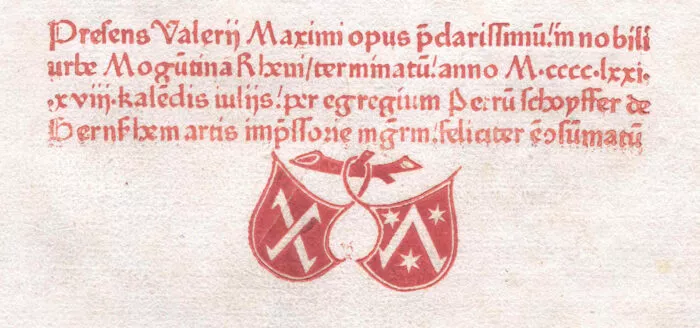 Presens Valerij Maximi opus p̄clarissimū! in nobili
urbe Mogūtina Rheni/ terminatū! anno M·cccc·lxxi·
·xviij·kalēdis iulijs! per egregium Petrū schoyffer de
Gernsħem artis imp̄ssorie mgr̄m! feliciter ē ↄsūmatū